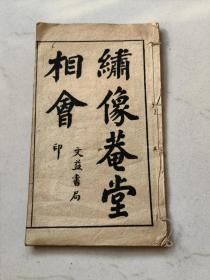 繡像菴堂
相會
文益書局
印